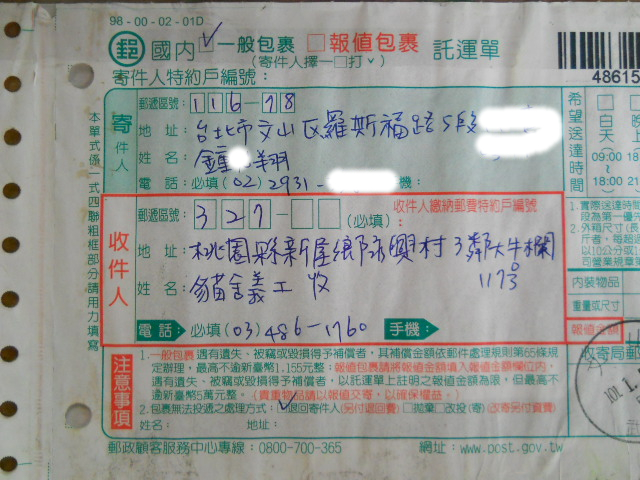 98-00-02-01D
郵 國內 ✓□一般包裹 □報值包裹 託運單
(寄件人擇一□打✓)
48615
寄件人特約戶編號:
本單式係一式四聯粗框部分請用力填寫
寄件人
郵遞區號:116-78
地 址:台北市文山區羅斯福路5段
姓 名:鍾 翔
電 話:必填(02)2931- 機:
希望送達時間
□ 白天
09:00
18:00
收件人
收件人繳納郵費特約戶編號
郵遞區號:327-□□(必填):
地 址:桃園縣新屋鄉永興村3鄰大牛欄
117號
姓 名:貓舍義工收
電 話:必填(03)486-1760 手機:
內裝物品
重量或尺寸
報值金額
收寄局郵
101.1.
注意事項
1.一般包裹遇有遺失、被竊或毀損得予補償者,其補償金額依郵件處理規則第65條規
定辦理,最高不逾新臺幣1,155元整;報值包裹請將報值金額填入報值金額欄位內,
遇有遺失、被竊或毀損得予補償者,以託運單上註明之報值金額為限,但最高不
逾新臺幣5萬元整。(貴重物品請以報值交寄,以確保權益。)
2.包裹無法投遞之處理方式:☑退回寄件人(另付退回費) □拋棄 □改投(寄)(改寄另付資費)
姓名: 地址:
郵政顧客服務中心專線:0800-700-365 網址:www.post.gov.tw